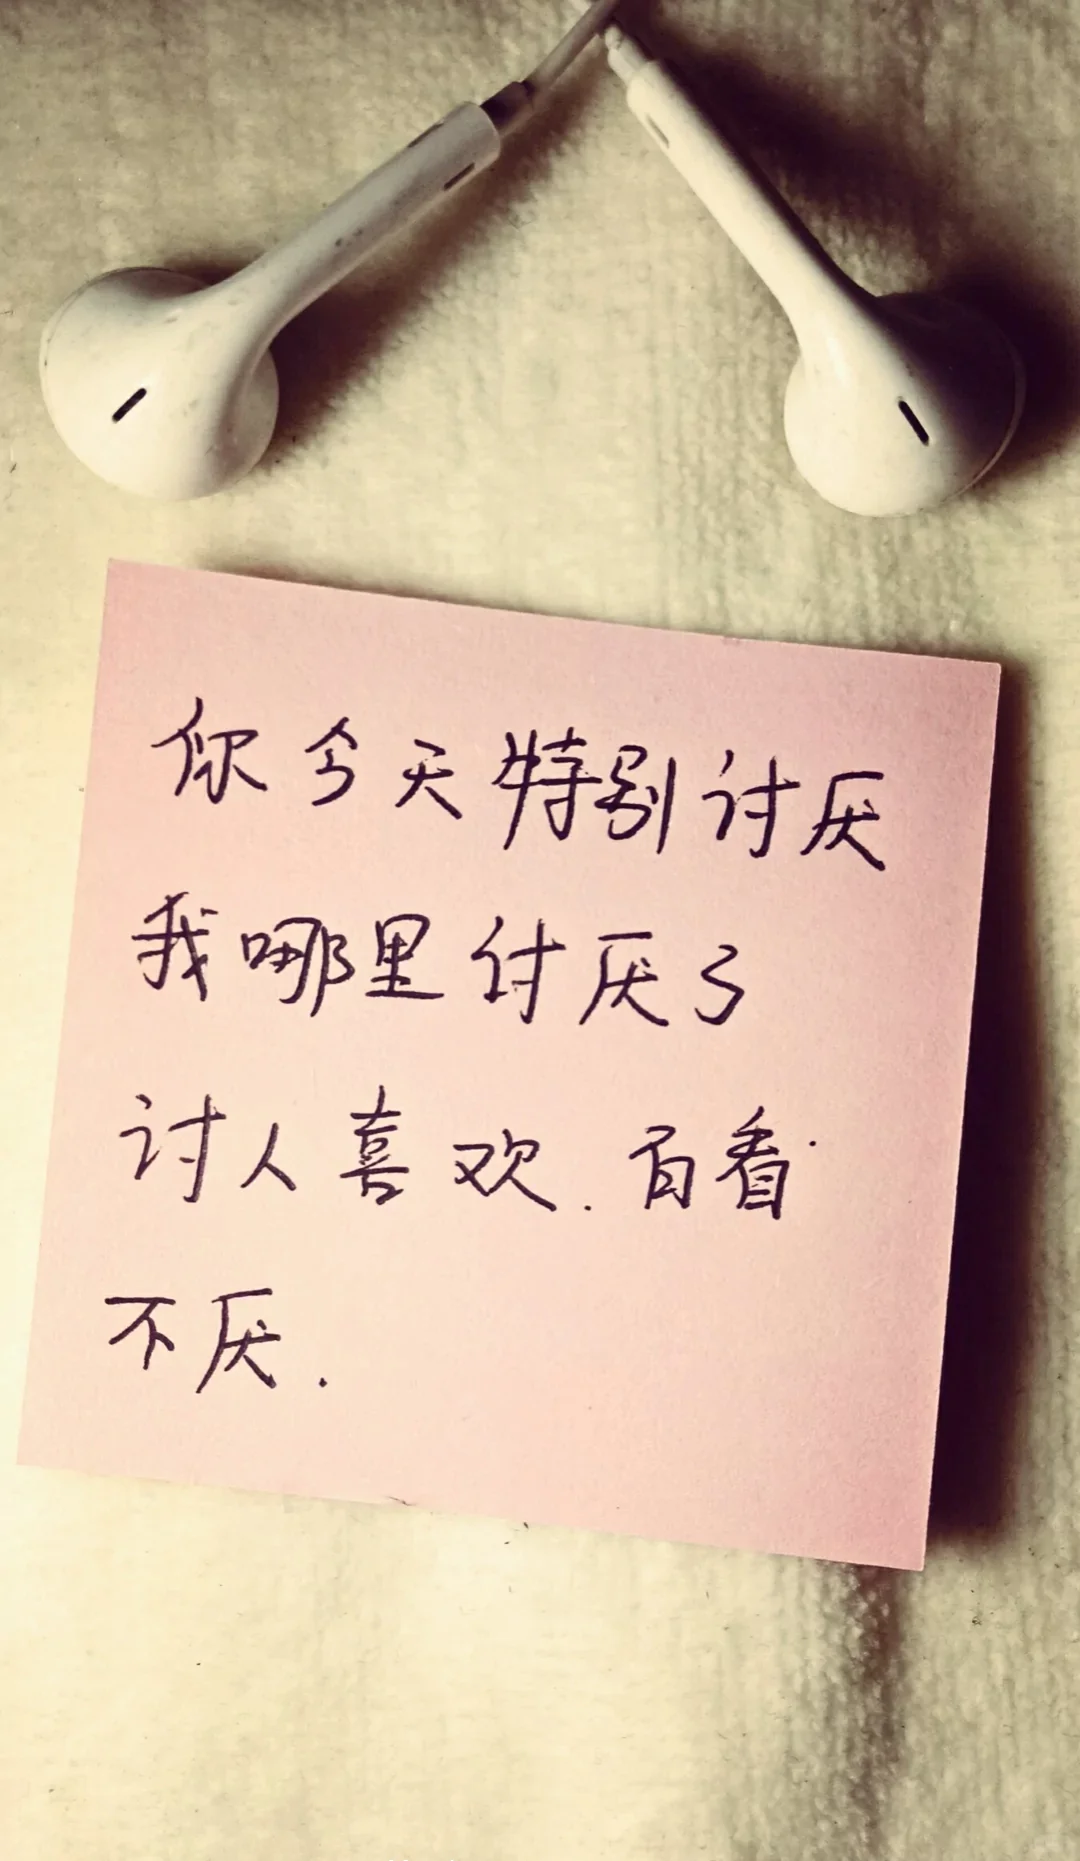 你今天特别讨厌
我哪里讨厌了
讨人喜欢.百看
不厌.